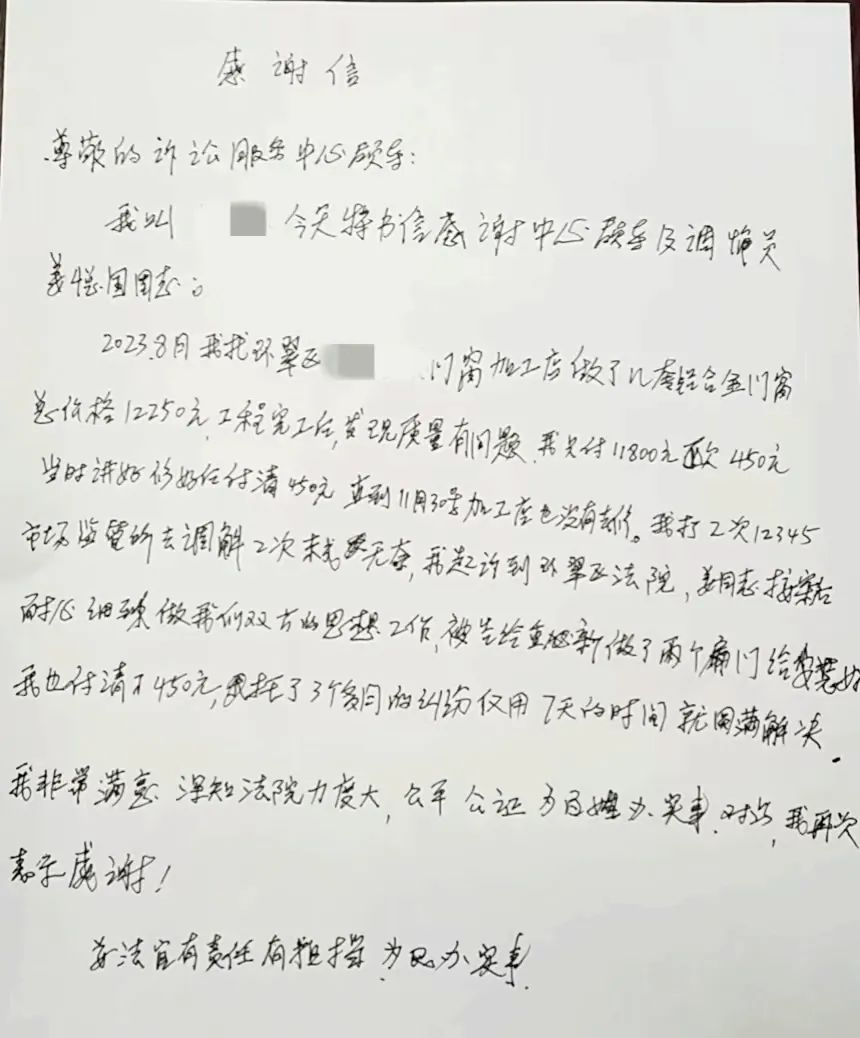 感谢信
尊敬的诉讼服务中心领导:
我叫 今天特书信感谢中心领导及调解员
姜 国同志。
2023.8月我找环翠区 门窗加工店做了几套铝合金门窗
总价格12250元,工程完工后,发现质量有问题,我只付11800元 欠450元
当时讲好修好后付清450元 直到11月30号加工店也没有去修。我打2次12345
市场监管所去调解2次未 无奈,我起诉到环翠区法院,姜同志接案后
耐心细致做我们双方的思想工作,被告给重新做了两个扇门给安装好
我也付清了450元,我托了3个多月的纠纷仅用7天的时间就圆满解决.
我非常满意 深知法院力度大,公平公证为百姓办实事.对此,我再次
表示感谢!
姜法官有责任有担当 为民办实事.